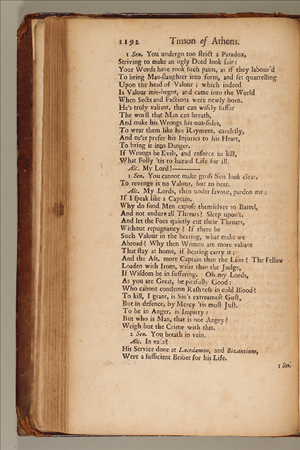 1192 Timon of Athens.
1 Sen. You undergo too strict a Paradox,
Striving to make an ugly Deed look fair:
Your Words have took such pains, as if they labour'd
To bring Man-slaughter into form, and set quarrelling
Upon the head of Valour; which indeed
Is Valour mis-begot, and came into the World
When Sects and Factions were newly born.
He's truly valiant, that can wisely suffer
The worst that Man can breath,
And make his Wrongs his out-sides,
To wear them like his Rayment, carelesly,
And ne'er prefer his Injuries to his Heart,
To bring it into Danger.
If Wrongs be Evils, and enforce us kill,
What Folly 'tis to hazard Life for ill.
Alc. My Lord!
1 Sen. You cannot make gross Sins look clear,
To revenge is no Valour, but to bear.
Alc. My Lords, then under favour, pardon me:
If I speak like a Captain.
Why do fond Men expose themselves to Battel,
And not endure all Threats? Sleep upon't,
And let the Foes quietly cut their Throats,
Without repugnancy? If there be
Such Valour in the bearing, what make we
Abroad? Why then Women are more valiant
That stay at home, if bearing carry it:
And the Ass, more Captain than the Lion? The Fellow
Loaden with Irons, wiser than the Judge,
If Wisdom be in suffering. Oh my Lords,
As you are Great, be pitifully Good:
Who cannot condemn Rashness in cold Blood?
To kill, I grant, is Sin's extreamest Gust,
But in defence, by Mercy 'tis most Just.
To be in Anger, is Impiety:
But who is Man, that is not Angry?
Weigh but the Crime with this.
2 Sen. You breath in vain.
Alc. In vain!
His Service done at Lacedæmon, and Bizantium,
Were a sufficient Briber for his Life.
1 Sen.